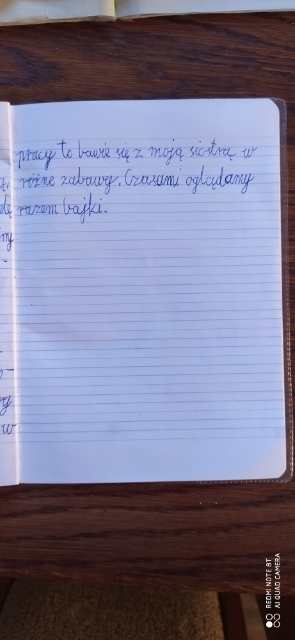 pracy to bawię się z moją siostrą w
różne zabawy. Czasami oglądamy
razem bajki.
ny
w
REDMI NOTE 8T
AI QUAD CAMERA